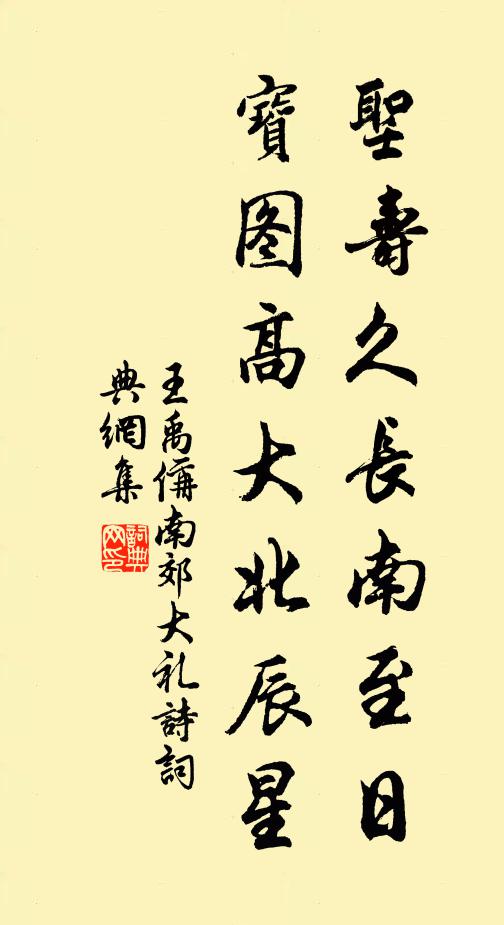 聖壽久長南至日
寶图高大北辰星
王禹偁南郊大礼詩詞
典網集
詞典网印